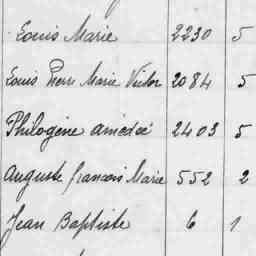 Louis Marie 2230 5
Louis Pierre Marie Victor 2084 5
Philogène amédée 2403 5
Auguste françois Marie 552 2
Jean Baptiste 6 1